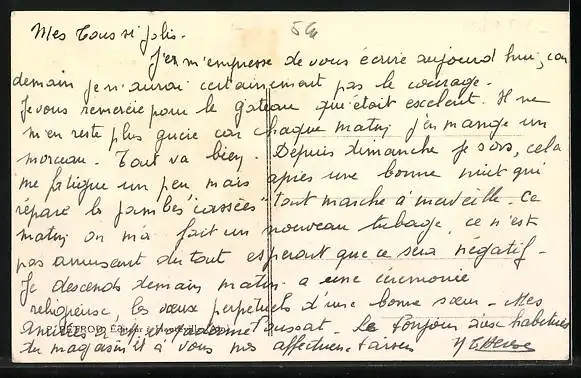 Mes Tous si jolis.
J'en m'empresse de vous écrire aujourd'hui, car
demain je n'aurai certainement pas le courage.
Je vous remercie pour le gateau qui était excelent. Il ne
m'en reste plus guère car chaque matin j'en mange un
morceau. Tout va bien. Depuis dimanche je sors, cela
me fatigue un peu mais après une bonne nuit qui
répare les jambes "cassées" tout marche à merveille. Ce
matin on m'a fait un nouveau tubage, ce n'est
pas amusant du tout esperant que ce sera négatif.
Je descends demain matin a une cérémonie
religieuse, les vœux perpétuels d'une bonne sœur. Mes
amitiés à Toussat. Le bonjour aux habitués
du magasin et à vous mes affectueux baisers